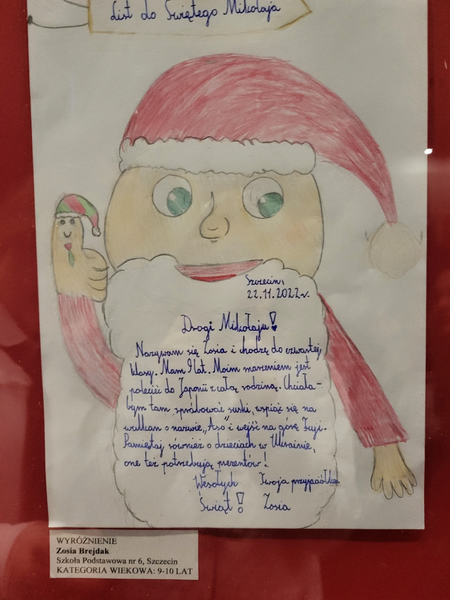 List do Świętego Mikołaja
Szczecin,
22.11.2022r.
Drogi Mikołaju!
Nazywam się Zosia i chodzę do czwartej
klasy. Mam 9 lat. Moim marzeniem jest
polecieć do Japonii z całą rodziną. Chciała-
bym tam spróbować suski, wspiąć się na
wulkan o nazwie „Aso" i wejść na górę Fuji.
Pamiętaj również o dzieciach w Ukrainie,
one też potrzebują prezentów!
Wesołych Twoja przyjaciółka
Świąt! Zosia
WYRÓŻNIENIE
Zosia Brejdak
Szkoła Podstawowa nr 6, Szczecin
KATEGORIA WIEKOWA: 9-10 LAT